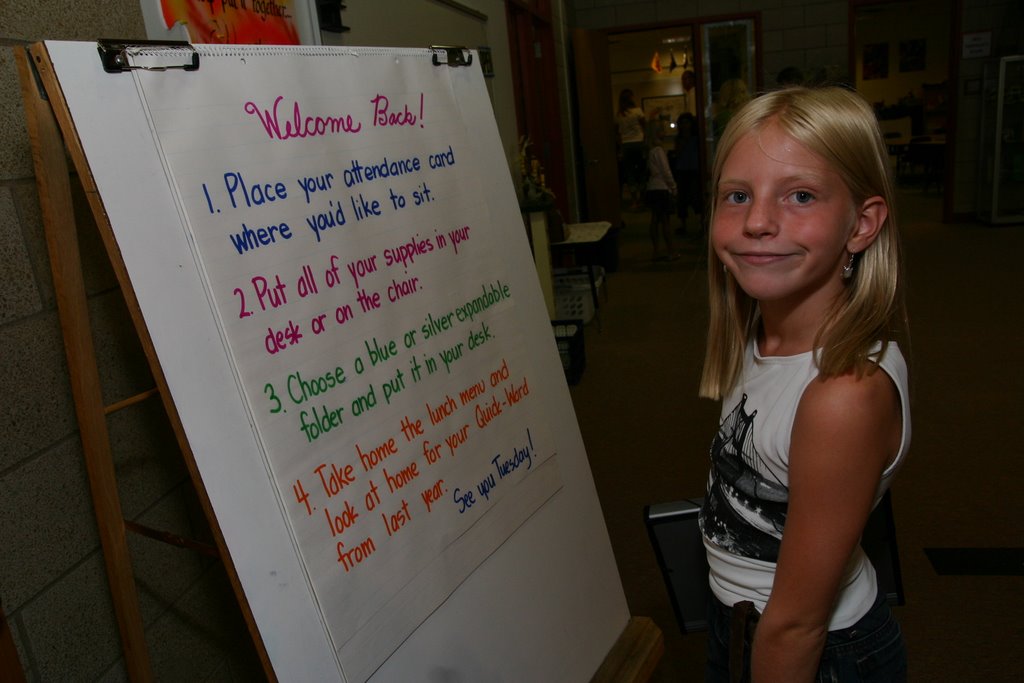 put it together...
Welcome Back!
1. Place your attendance card
where you'd like to sit.
2. Put all of your supplies in your
desk or on the chair.
3. Choose a blue or silver expandable
folder and put it in your desk.
4. Take home the lunch menu and
look at home for your Quick-Word
from last year.
See you Tuesday!